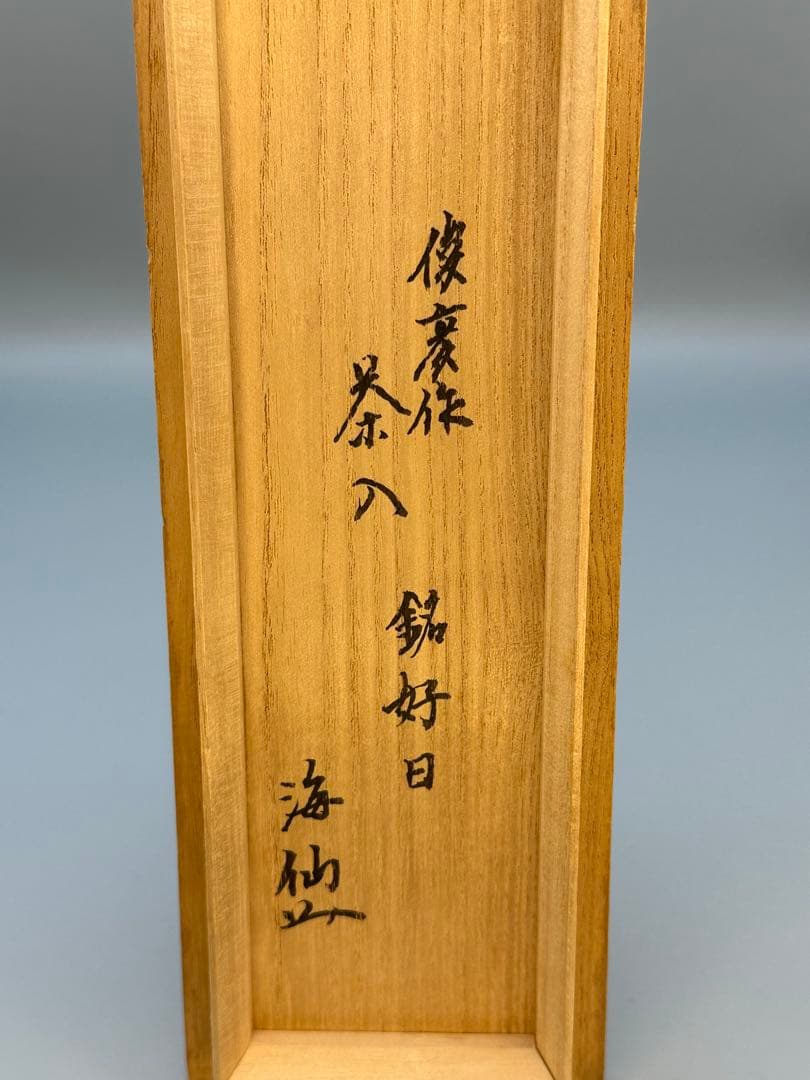 作
茶入
銘好日
海仙